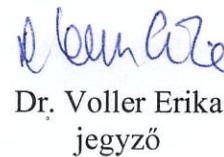 Dr. Voller Erika
jegyző